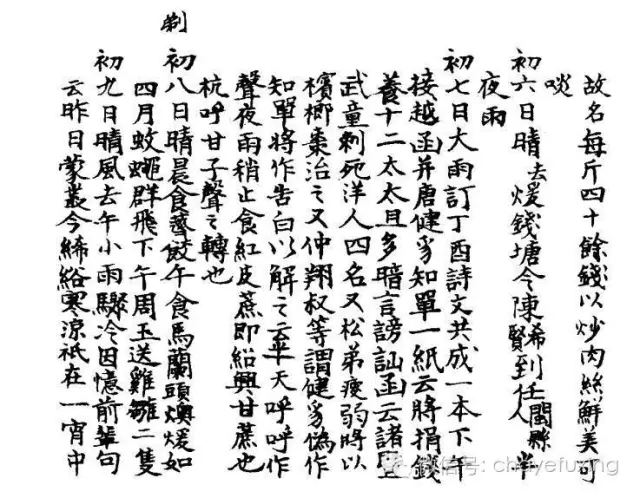 故名每斤四十餘錢以炒肉絲鮮美可
啖
初六日晴去煖錢塘令陳希賢到任閩縣人半
夜雨
初七日大雨訂丁酉詩文共成一本下午
接越函并唐健豸知單一紙云將捐錢
養十二太太且多暗言謗訕函云諸暨
武童刺死洋人四名又松弟瘦弱將以
檳榔棗治之又仲翔叔等謂健豸偽作
知單將作告白以解之云 天呼呼作
聲夜雨稍止食紅皮蔗即紹興甘蔗也
杭呼甘子聲之轉也
初八日晴晨食薺餃午食馬蘭頭燠煖如
四月蚊蠅群飛下午周玉送雞雛二隻
初九日晴風去午小雨驟冷因憶前輩句
云昨日蒙叢今絺綌寒涼祇在一宵中
剃
微信号: chuyefuxing